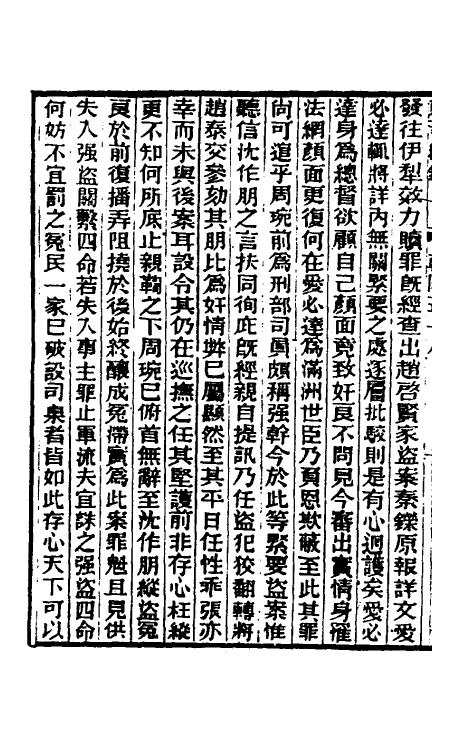 發往伊犁效力贖罪旣經查出趙啓賢家盜案秦鑅原報詳文愛
必達輒將詳內無關緊要之處逐層批駁則是有心迴護矣愛必
達身爲總督欲顧自己顏面竟致奸良不問見今審出實情身罹
法網顏面更復何在愛必達爲滿洲世臣乃負恩欺蔽至此其罪
尙可逭乎周琬前爲刑部司員頗稱强幹今於此等緊要盜案惟
聽信沈作朋之言扶同徇庇旣經親自提訊乃任盜犯狡翻轉將
趙泰交參劾其朋比爲奸情弊已屬顯然至其平日任性乖張亦
幸而未與後案耳設令其仍在巡撫之任其堅護前非存心枉縱
更不知何所底止親鞫之下周琬已俯首無辭至沈作朋縱盜冤
良於前復播弄阻撓於後始終釀成冤滯實爲此案罪魁且見供
失入强盜關繫四命若失入事主罪止軍流夫宜誅之强盜四命
何妨不宜罰之冤民一家已破設司臬者皆如此存心天下可以